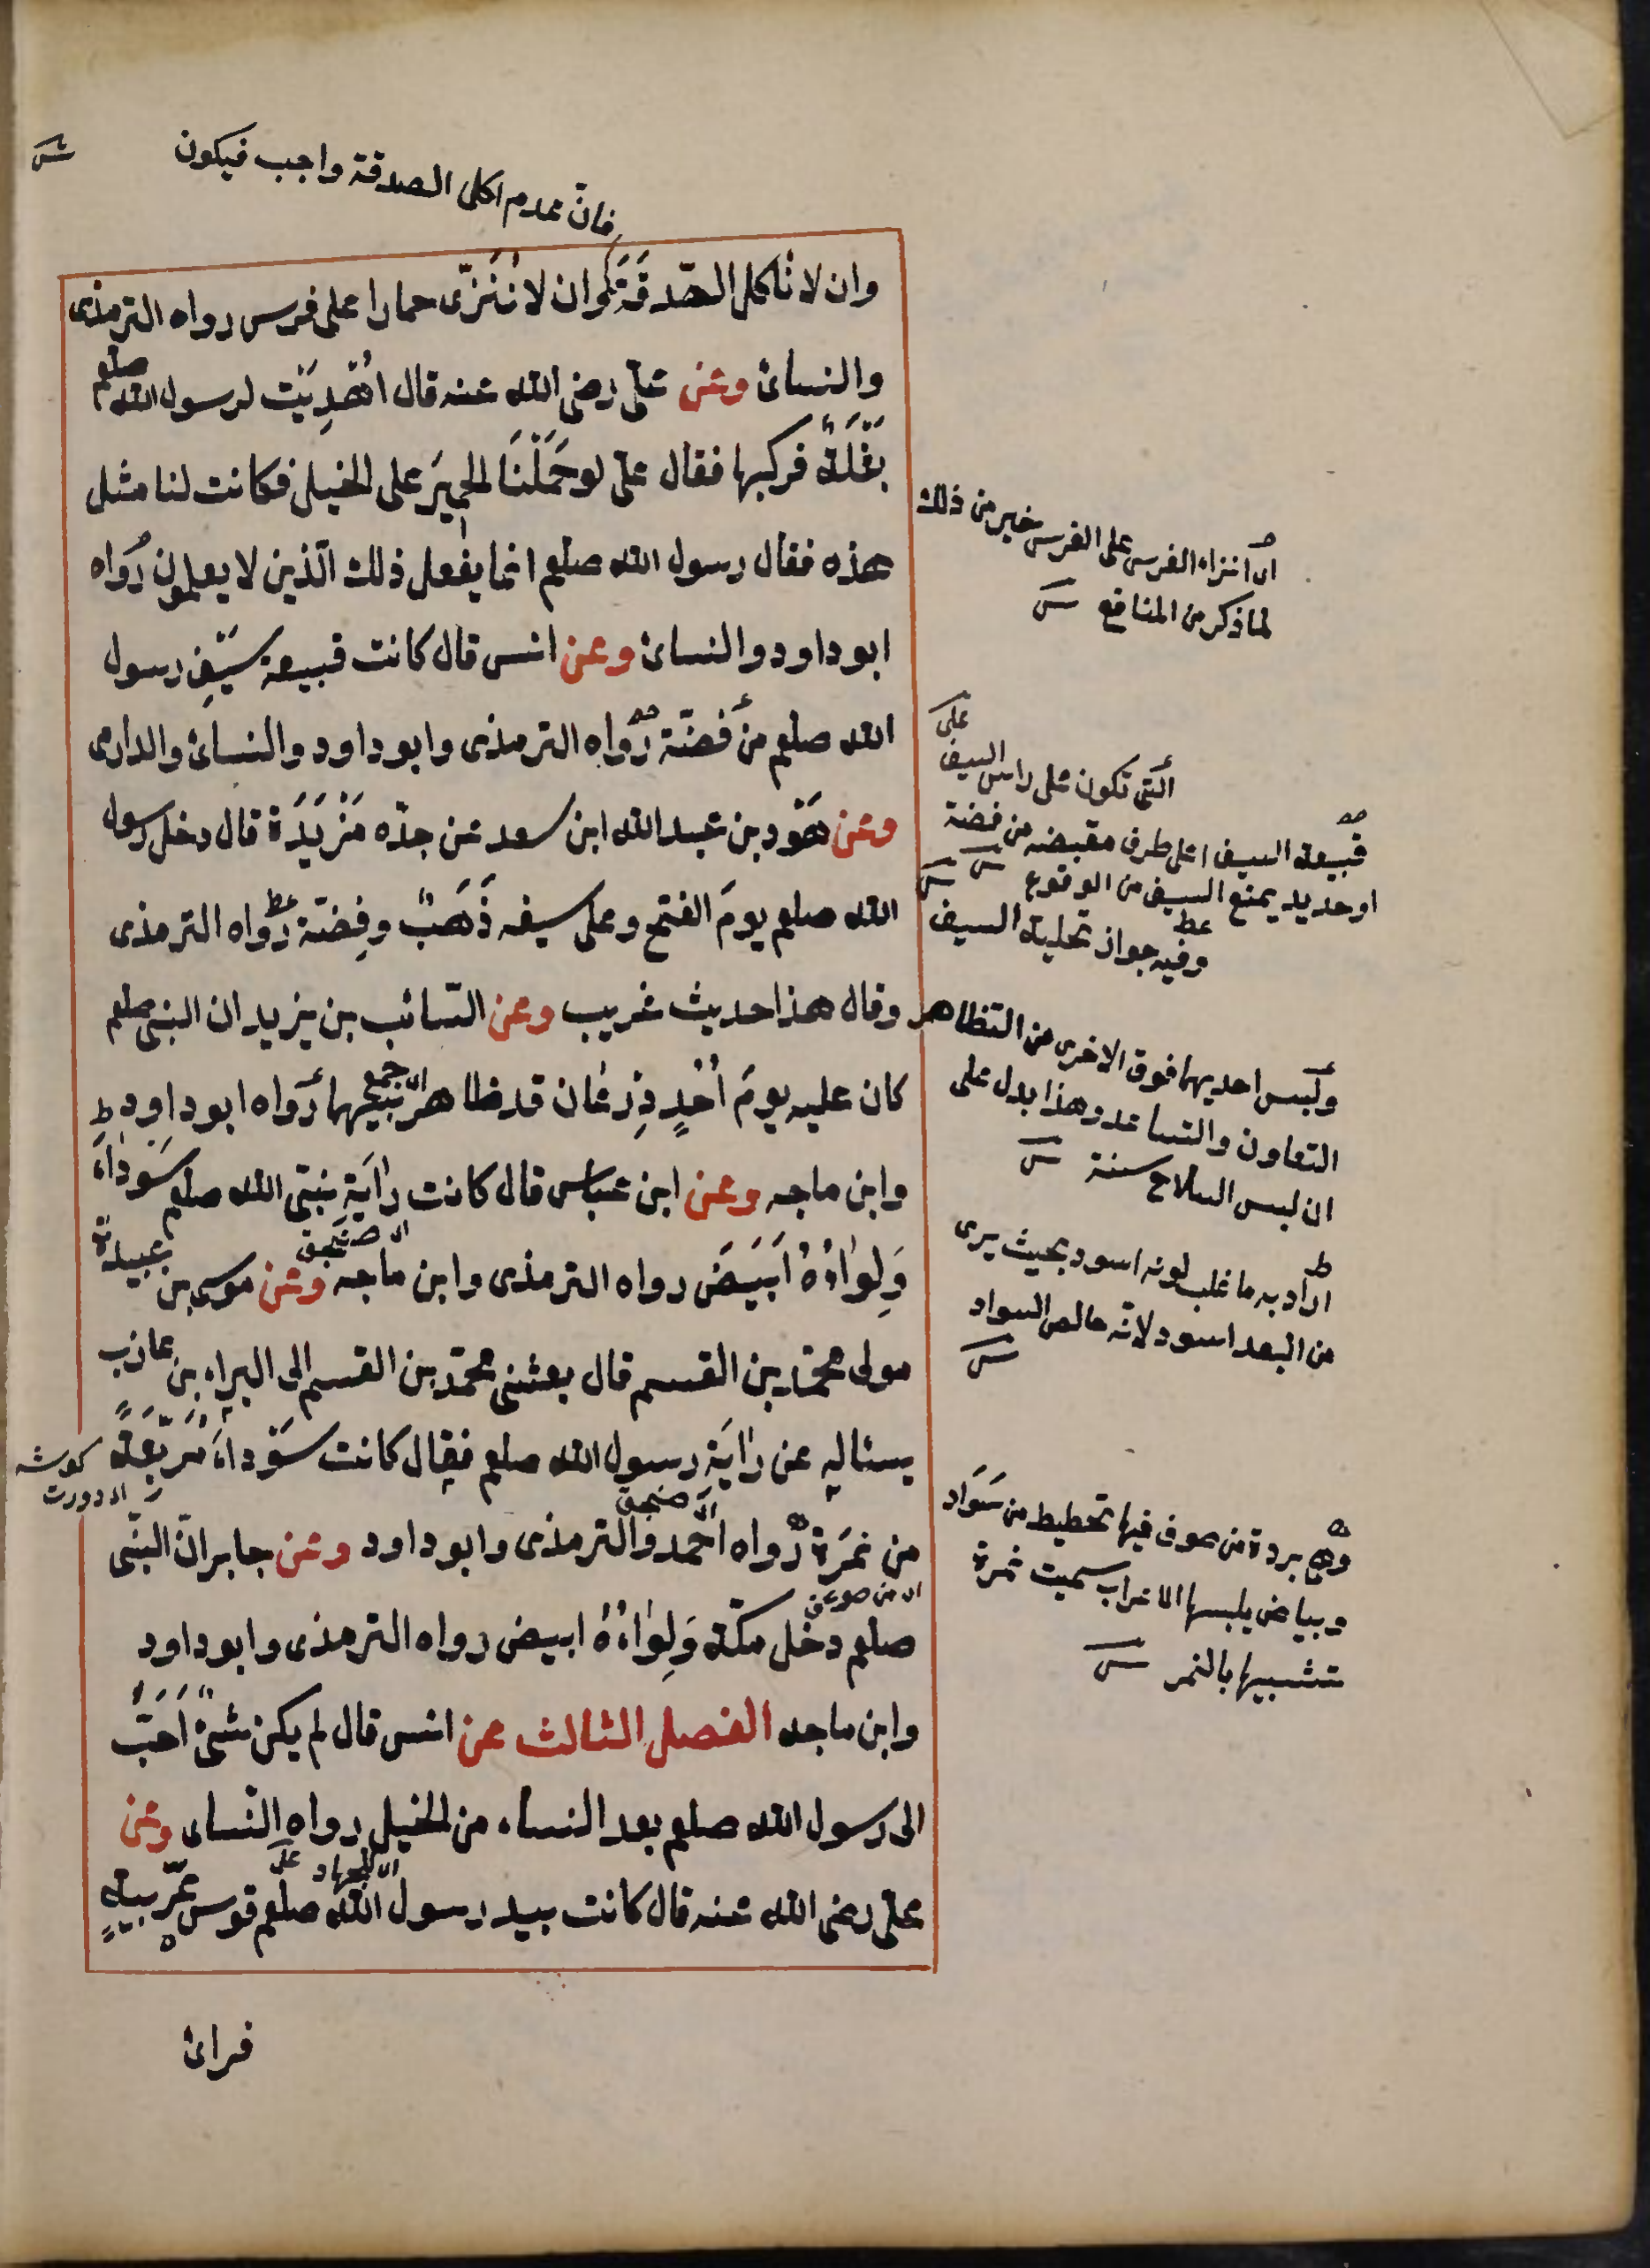 فان عدم اكل الصدقة واجب فيكون
وان لا نأكل الصّدقَةَ وان لا نُنَزّى حمارا على فرس رواه الترمذى
والنسائ وعن علىّ رضى الله عنه قال اُهْدِيَتْ لرسول الله صلعم
بَغْلَةٌ فركبها فقال علىّ لو حَمَلْنَا الحميرَ على الخيل فكانت لنا مثل
هذه فقال رسول الله صلعم انما يفعل ذلك الّذين لا يعلمون رواه
ابو داود والنسائ وعن انس قال كانت قبيعة سَيْفِ رسول
الله صلعم من فضّة رواه الترمذى وابو داود والنسائ والدارمى
وعن هُود بن عبد الله ابن سعد عن جدّه مَزْيَدَة قال دخل رسول
الله صلعم يومَ الفتح وعلى سيفه ذَهَبٌ وفِضّة رواه الترمذى
وقال هذا حديث غريب وعن السّائب بن يزيد ان النبىّ صلعم
كان عليه يومَ اُحُدٍ دِرعان قد ظاهر بينهما رواه ابو داود
وابن ماجه وعن ابن عباس قال كانت رايَة نبىّ الله صلعم سَوْداءَ
وَلِواءُهُ اَبْيَضَ رواه الترمذى وابن ماجه وعن موسى بن عبيدة
مولى محمّد بن القسم قال بعثنى محمّد بن القسم الى البراء بن عازب
يسئاله عن رايَة رسول الله صلعم فقال كانت سَوْداءَ مُرَبّعَةً
من نَمرَة رواه احمد والترمذى وابو داود وعن جابر انّ النبّى
صلعم دخل مكّة وَلِواءُهُ ابيض رواه الترمذى وابو داود
وابن ماجه الفصل الثالث عن انس قال لم يكن شىْءٌ اَحَبَّ
الى رسول الله صلعم بعد النساء من الخيل رواه النّساى وعن
علىّ رضى الله عنه قال كانت بيد رسول الله صلعم قوس عَرَبيةٍ
فرائ
اى انزاء الفرس على الفرس خير من ذلك
لما ذكر من المنافع
الّتى تكون على راس السيف
قبيعة السيف اعلى طرف مقبضه من فضة
او حديد يمنع السيف من الوقوع
وفيه جواز تحلية السيف
ولبس احديهما فوق الاخرى من التظاهر
التعاون والتساعد وهذا يدل على
ان لبس السلاح سنة
اراد به ما غلب لونه اسود بحيث يرى
من البعد اسود لانّه خالص السواد
وهى بردة من صوف فيها تخطيط من سَوَاد
وبياض يلبسها الاعراب سميت نمرة
تشبيها بالنمر
اى جمع
اى صنجق
اى من صوف
اى صنجق
كوشه
اى دورت
اى الجهاد